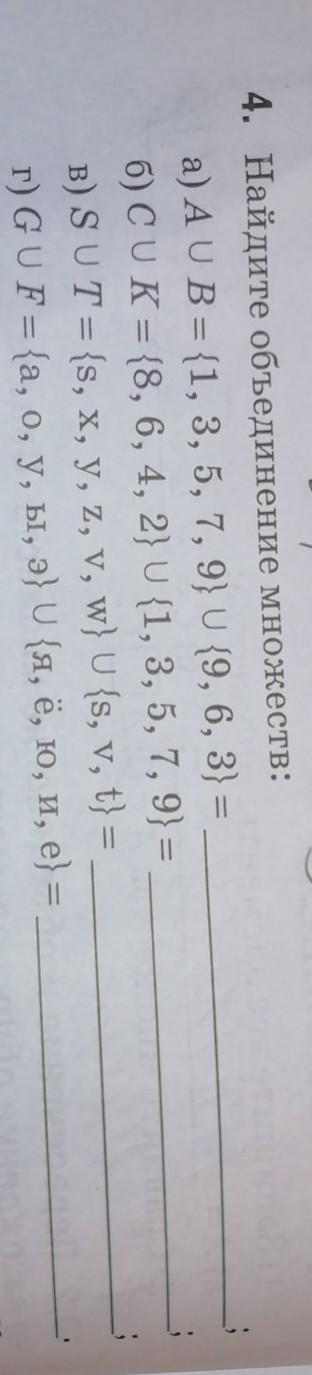 4. Найдите объединение множеств:
а) A ∪ B = {1, 3, 5, 7, 9} ∪ {9, 6, 3} = ;
б) C ∪ K = {8, 6, 4, 2} ∪ {1, 3, 5, 7, 9} = ;
в) S ∪ T = {s, x, y, z, v, w} ∪ {s, v, t} = ;
г) G ∪ F = {а, о, у, ы, э} ∪ {я, ё, ю, и, е} = .